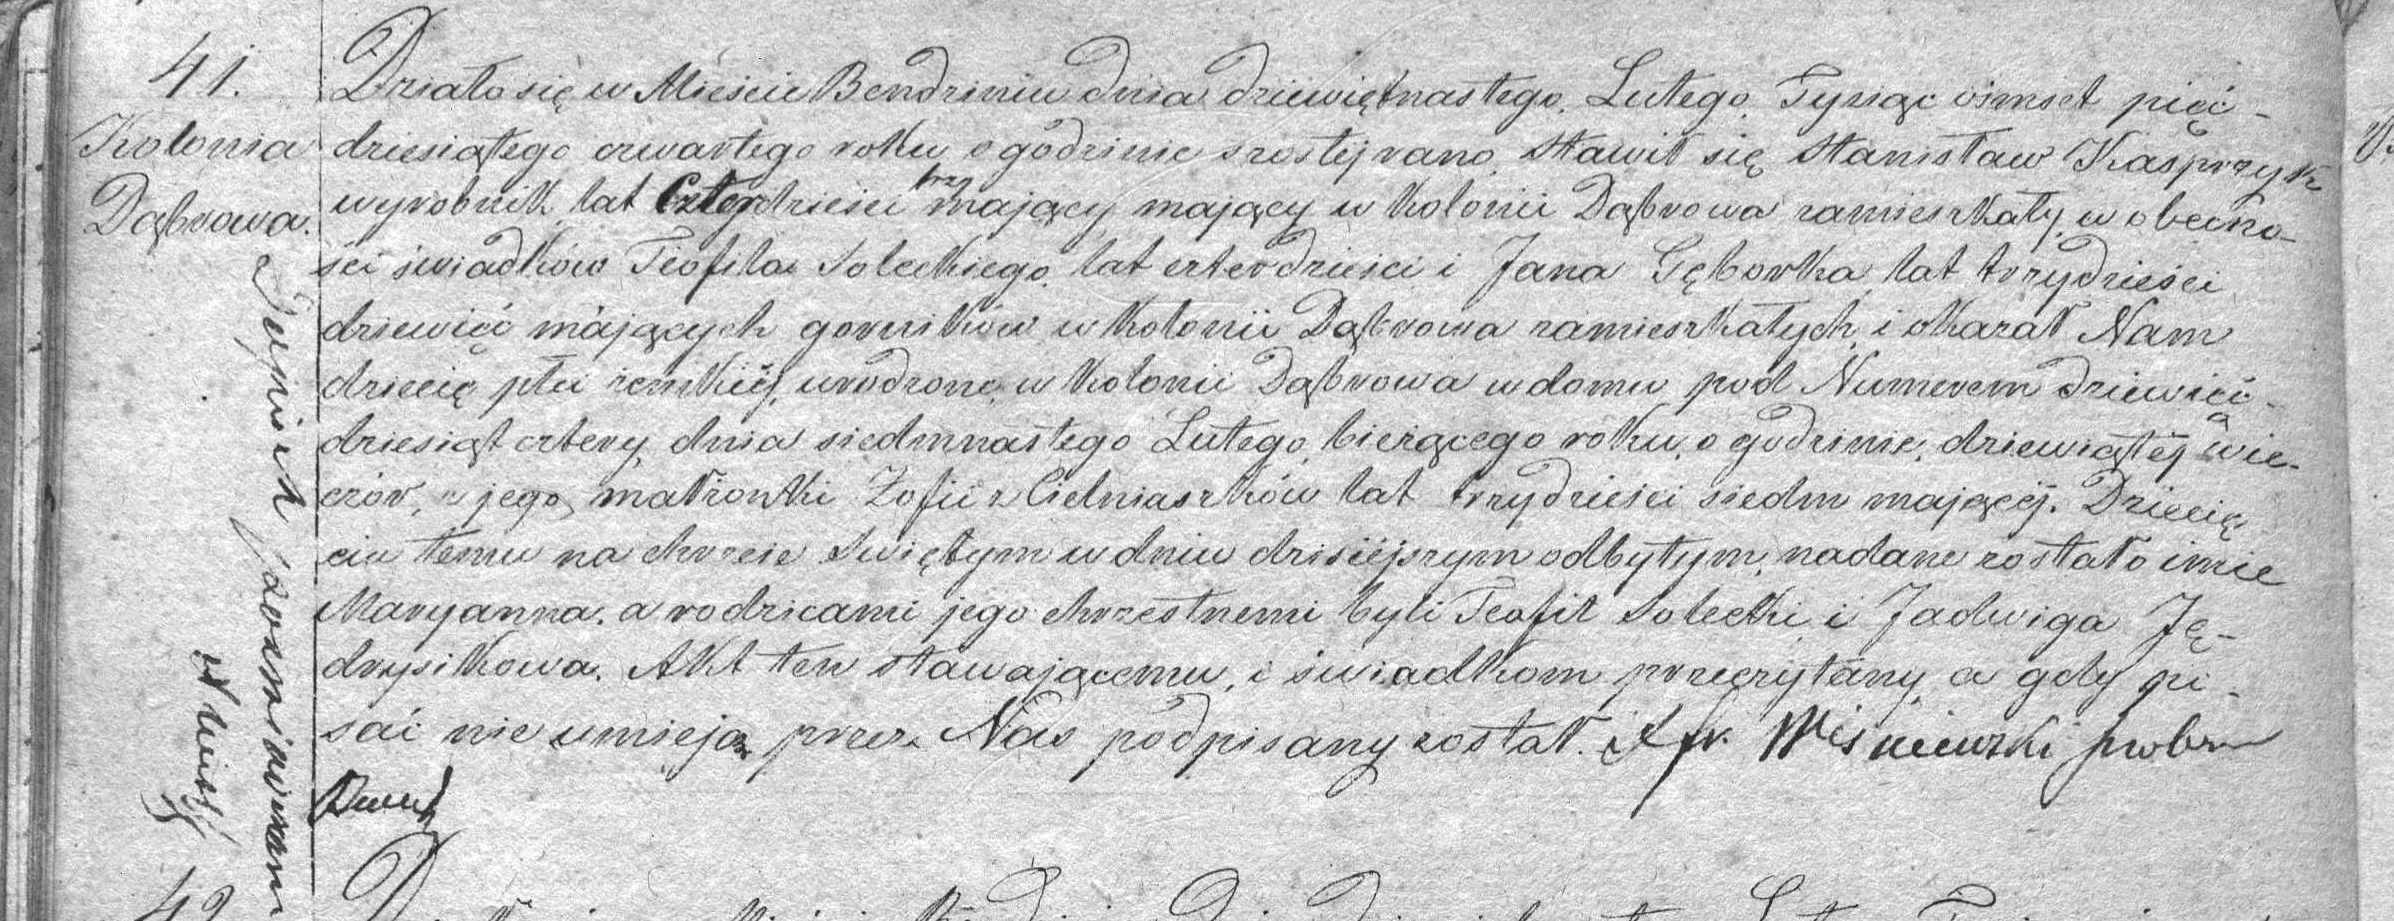 41.
Kolonia
Dąbrowa.
Działo się w Mieście Bendziniu dnia dziewiętnastego Lutego Tysiąc ośmset pięć-
dziesiątego czwartego roku o godzinie szostej rano, Stawił się Stanisław Kasprzyk
wyrobnik lat Czterdzieści trzy mający, mający w Kolonii Dąbrowa zamieszkały, w obecno-
ści świadków Teofila Soleckiego lat czterdzieści i Jana Gęborka lat trzydzieści
dziewięć mających gorników w Kolonii Dąbrowa zamieszkałych, i okazał Nam
dziecię płci żeńskiéj, urodzone w Kolonii Dąbrowa w domu pod Numerem dziewięć-
dziesiąt cztery, dnia siedmnastego Lutego, bieżącego roku, o godzinie, dziewiątéj w wie-
czór, z jego małżonki Zofii z Cielniaszków lat trzydzieści siedm mającéj. Dziecię
ciu temu na chrzcie Swiętym w dniu dzisiéjszym odbytym, nadane zostało imie
Maryanna, a rodzicami jego chrzestnemi byli Teofil Solecki i Jadwiga Ję-
drysikowa. Akt ten stawającemu, i świadkom przeczytany, a gdy pi-
sać nie umieją, przez Nas podpisany został. X fr. Wiśniewski prob
42